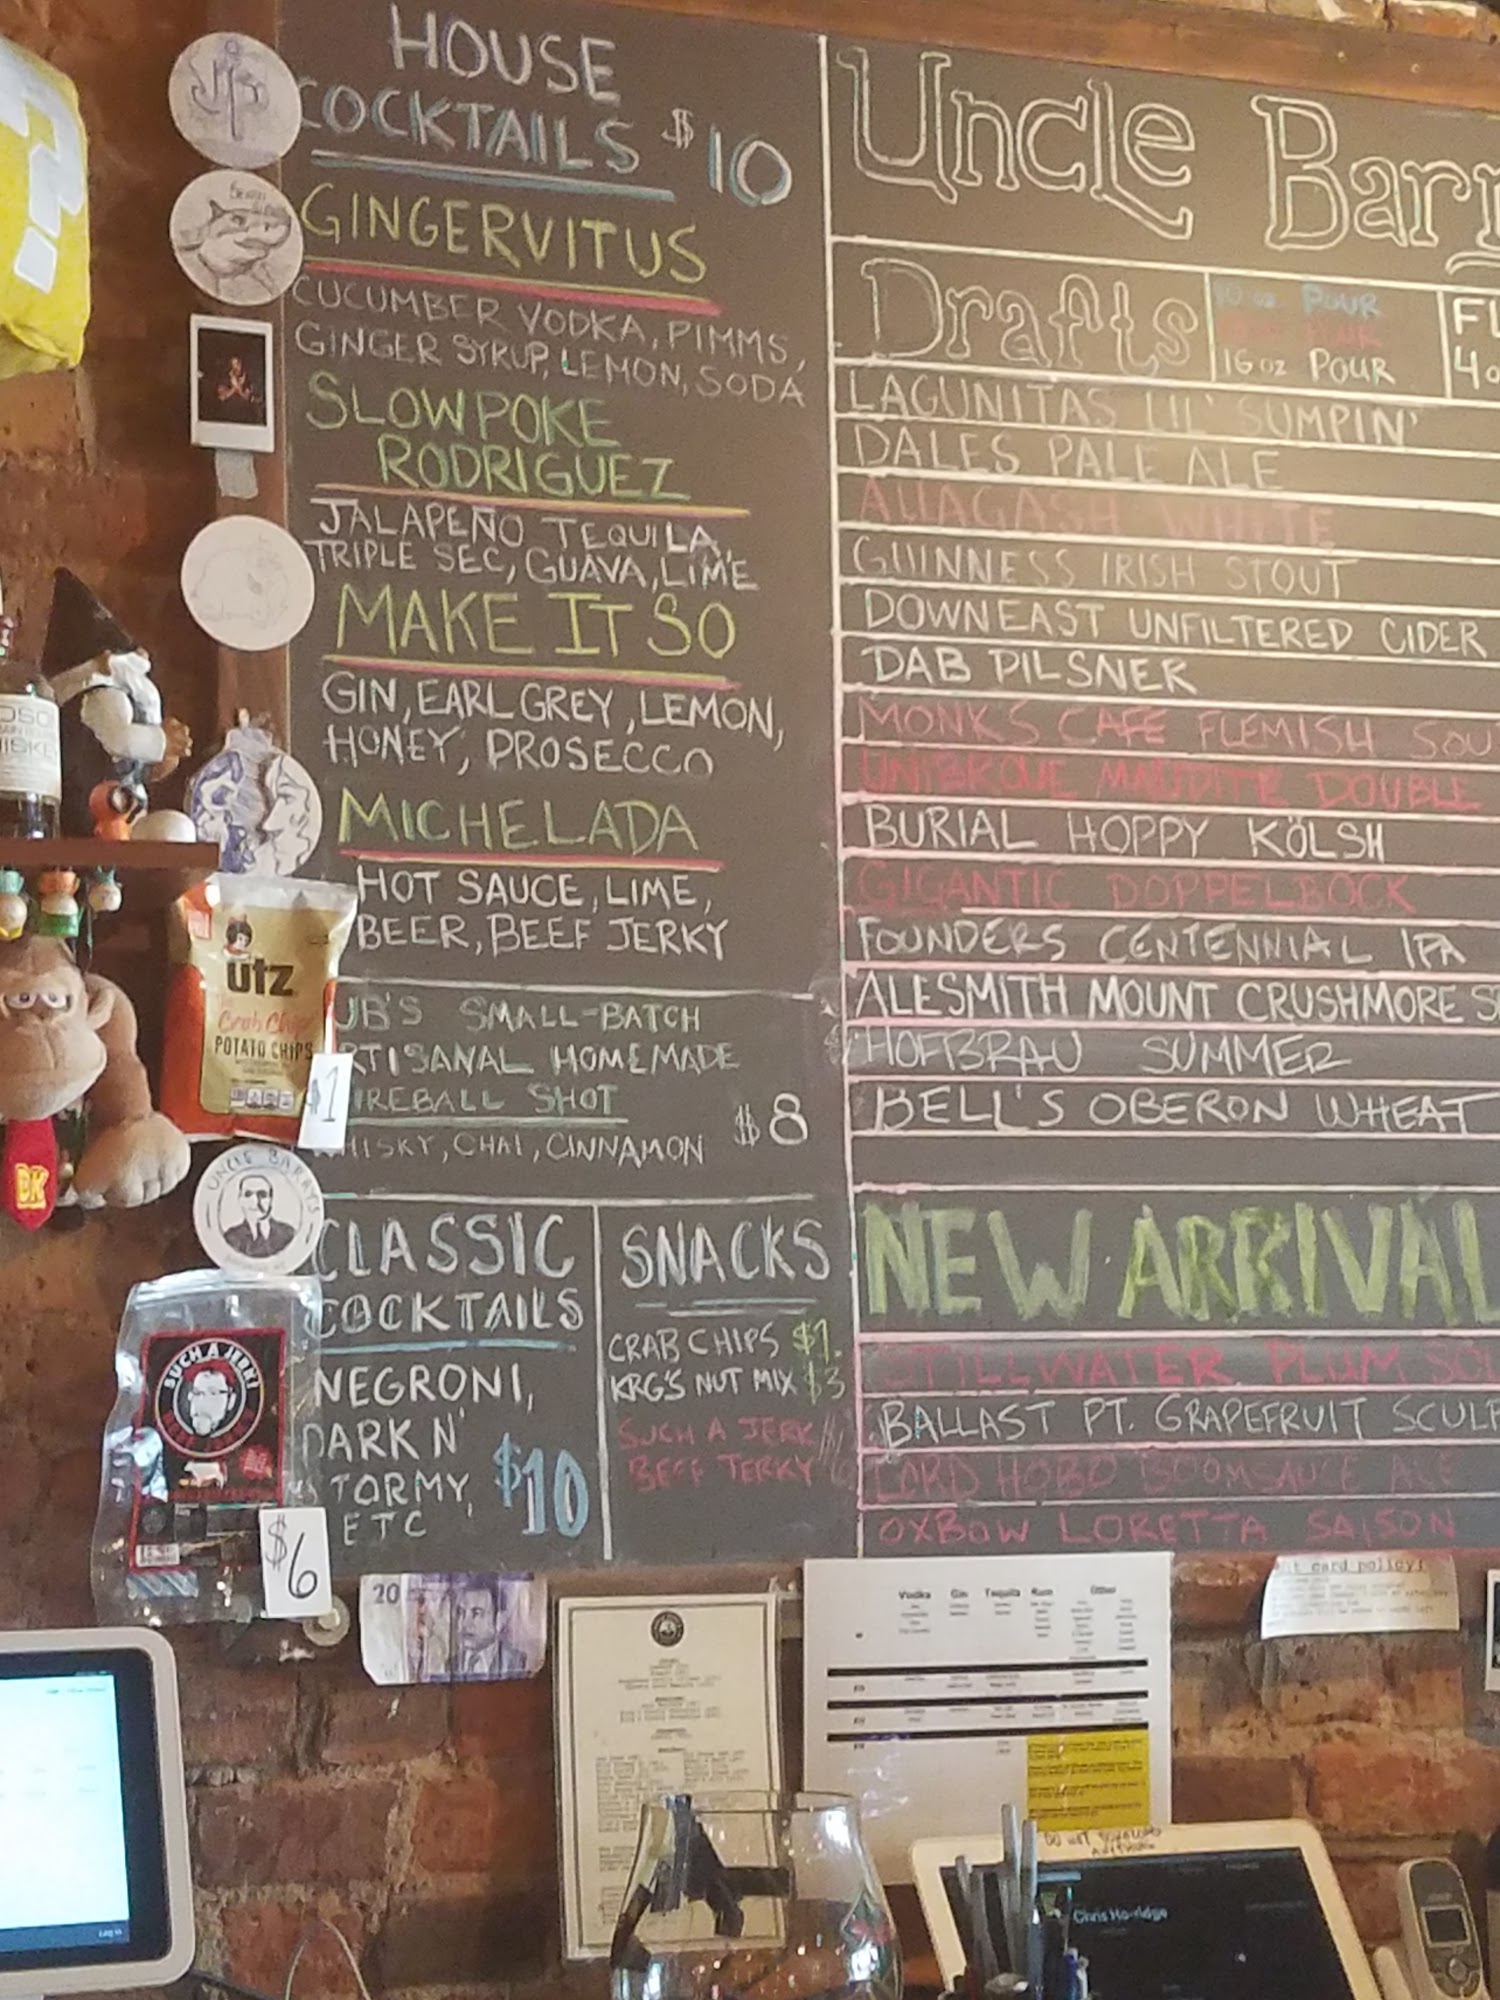 HOUSE
COCKTAILS $10
GINGERVITUS
CUCUMBER VODKA, PIMMS,
GINGER SYRUP, LEMON, SODA
SLOWPOKE
RODRIGUEZ
JALAPEÑO TEQUILA,
TRIPLE SEC, GUAVA, LIME
MAKE IT SO
GIN, EARL GREY, LEMON,
HONEY, PROSECCO
MICHELADA
HOT SAUCE, LIME,
BEER, BEEF JERKY
UB'S SMALL-BATCH
RTISANAL HOMEMADE
IREBALL SHOT
HISKY, CHAI, CINNAMON $8
CLASSIC
COCKTAILS
NEGRONI,
DARK N'
STORMY,
ETC
$10
SNACKS
CRAB CHIPS $1.
KRG'S NUT MIX $3
SUCH A JERK
BEEF JERKY
Uncle Barr
Drafts
10 oz POUR
16 oz POUR
FL
4 o
LAGUNITAS LIL' SUMPIN'
DALES PALE ALE
ALLAGASH WHITE
GUINNESS IRISH STOUT
DOWNEAST UNFILTERED CIDER
DAB PILSNER
MONKS CAFE FLEMISH SOU
UNIBROUE MAUDITE DOUBLE
BURIAL HOPPY KÖLSH
GIGANTIC DOPPELBOCK
FOUNDERS CENTENNIAL IPA
ALESMITH MOUNT CRUSHMORE S
HOFBRAU SUMMER
BELL'S OBERON WHEAT
NEW ARRIVAL
STILLWATER PLUM SOU
BALLAST PT. GRAPEFRUIT SCULP
LORD HOBO BOOMSAUCE ALE
OXBOW LORETTA SAISON
JP
?
utz
Crab Chip
POTATO CHIPS
$1
DK
UNCLE BARRYS
SUCH A JERK!
$6
20
Vodka Gin Tequila Rum Other
card policy!
Log In